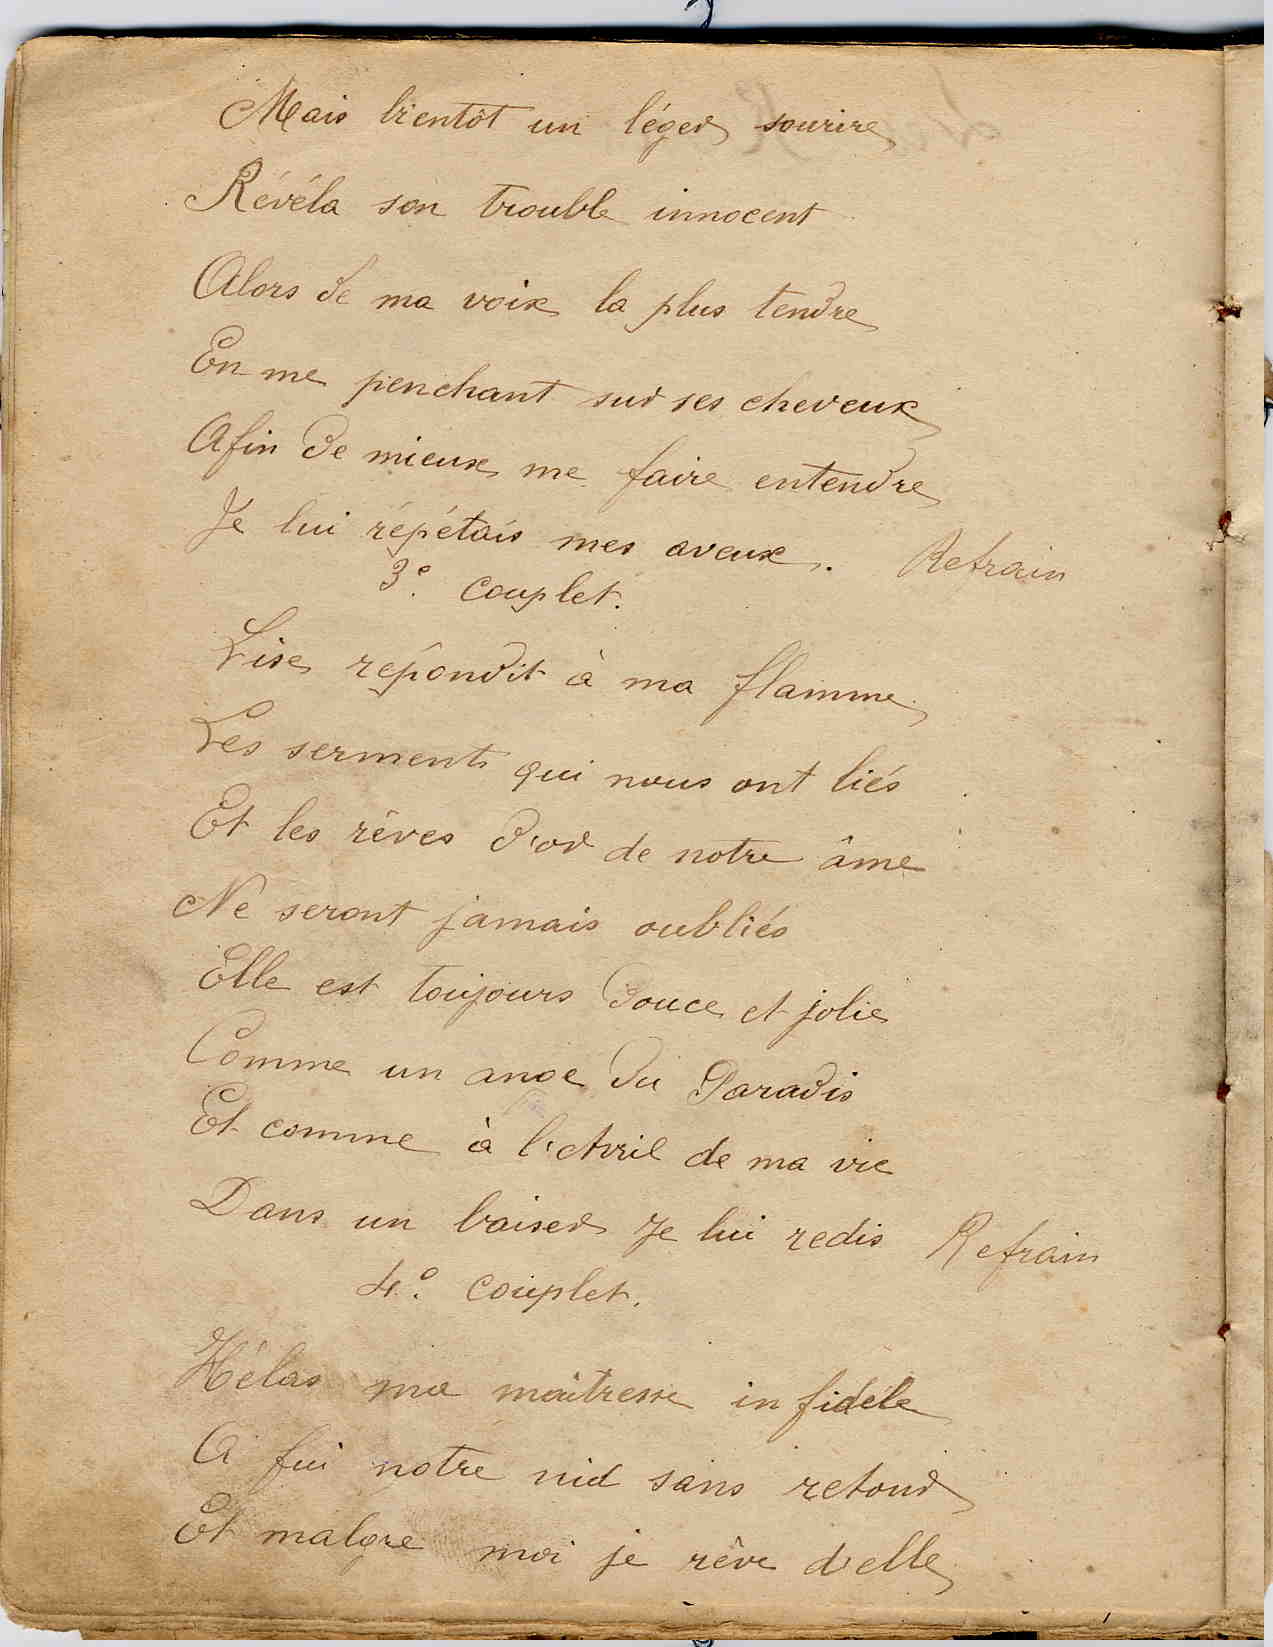 Mais bientôt un léger sourire
Révéla son trouble innocent
Alors de ma voix la plus tendre
En me penchant sur ses cheveux
Afin de mieux me faire entendre
Je lui répétais mes aveux. Refrain
3e. couplet.
Lise répondit à ma flamme
Les serments qui nous ont liés
Et les rêves d'or de notre âme
Ne seront jamais oubliés
Elle est toujours douce et jolie
Comme un ange du Paradis
Et comme à l'Avril de ma vie
Dans un baiser je lui redis Refrain
4e. couplet.
Hélas ma maitresse infidèle
A fui notre nid sans retour
Et malgre moi je rêve d'elle